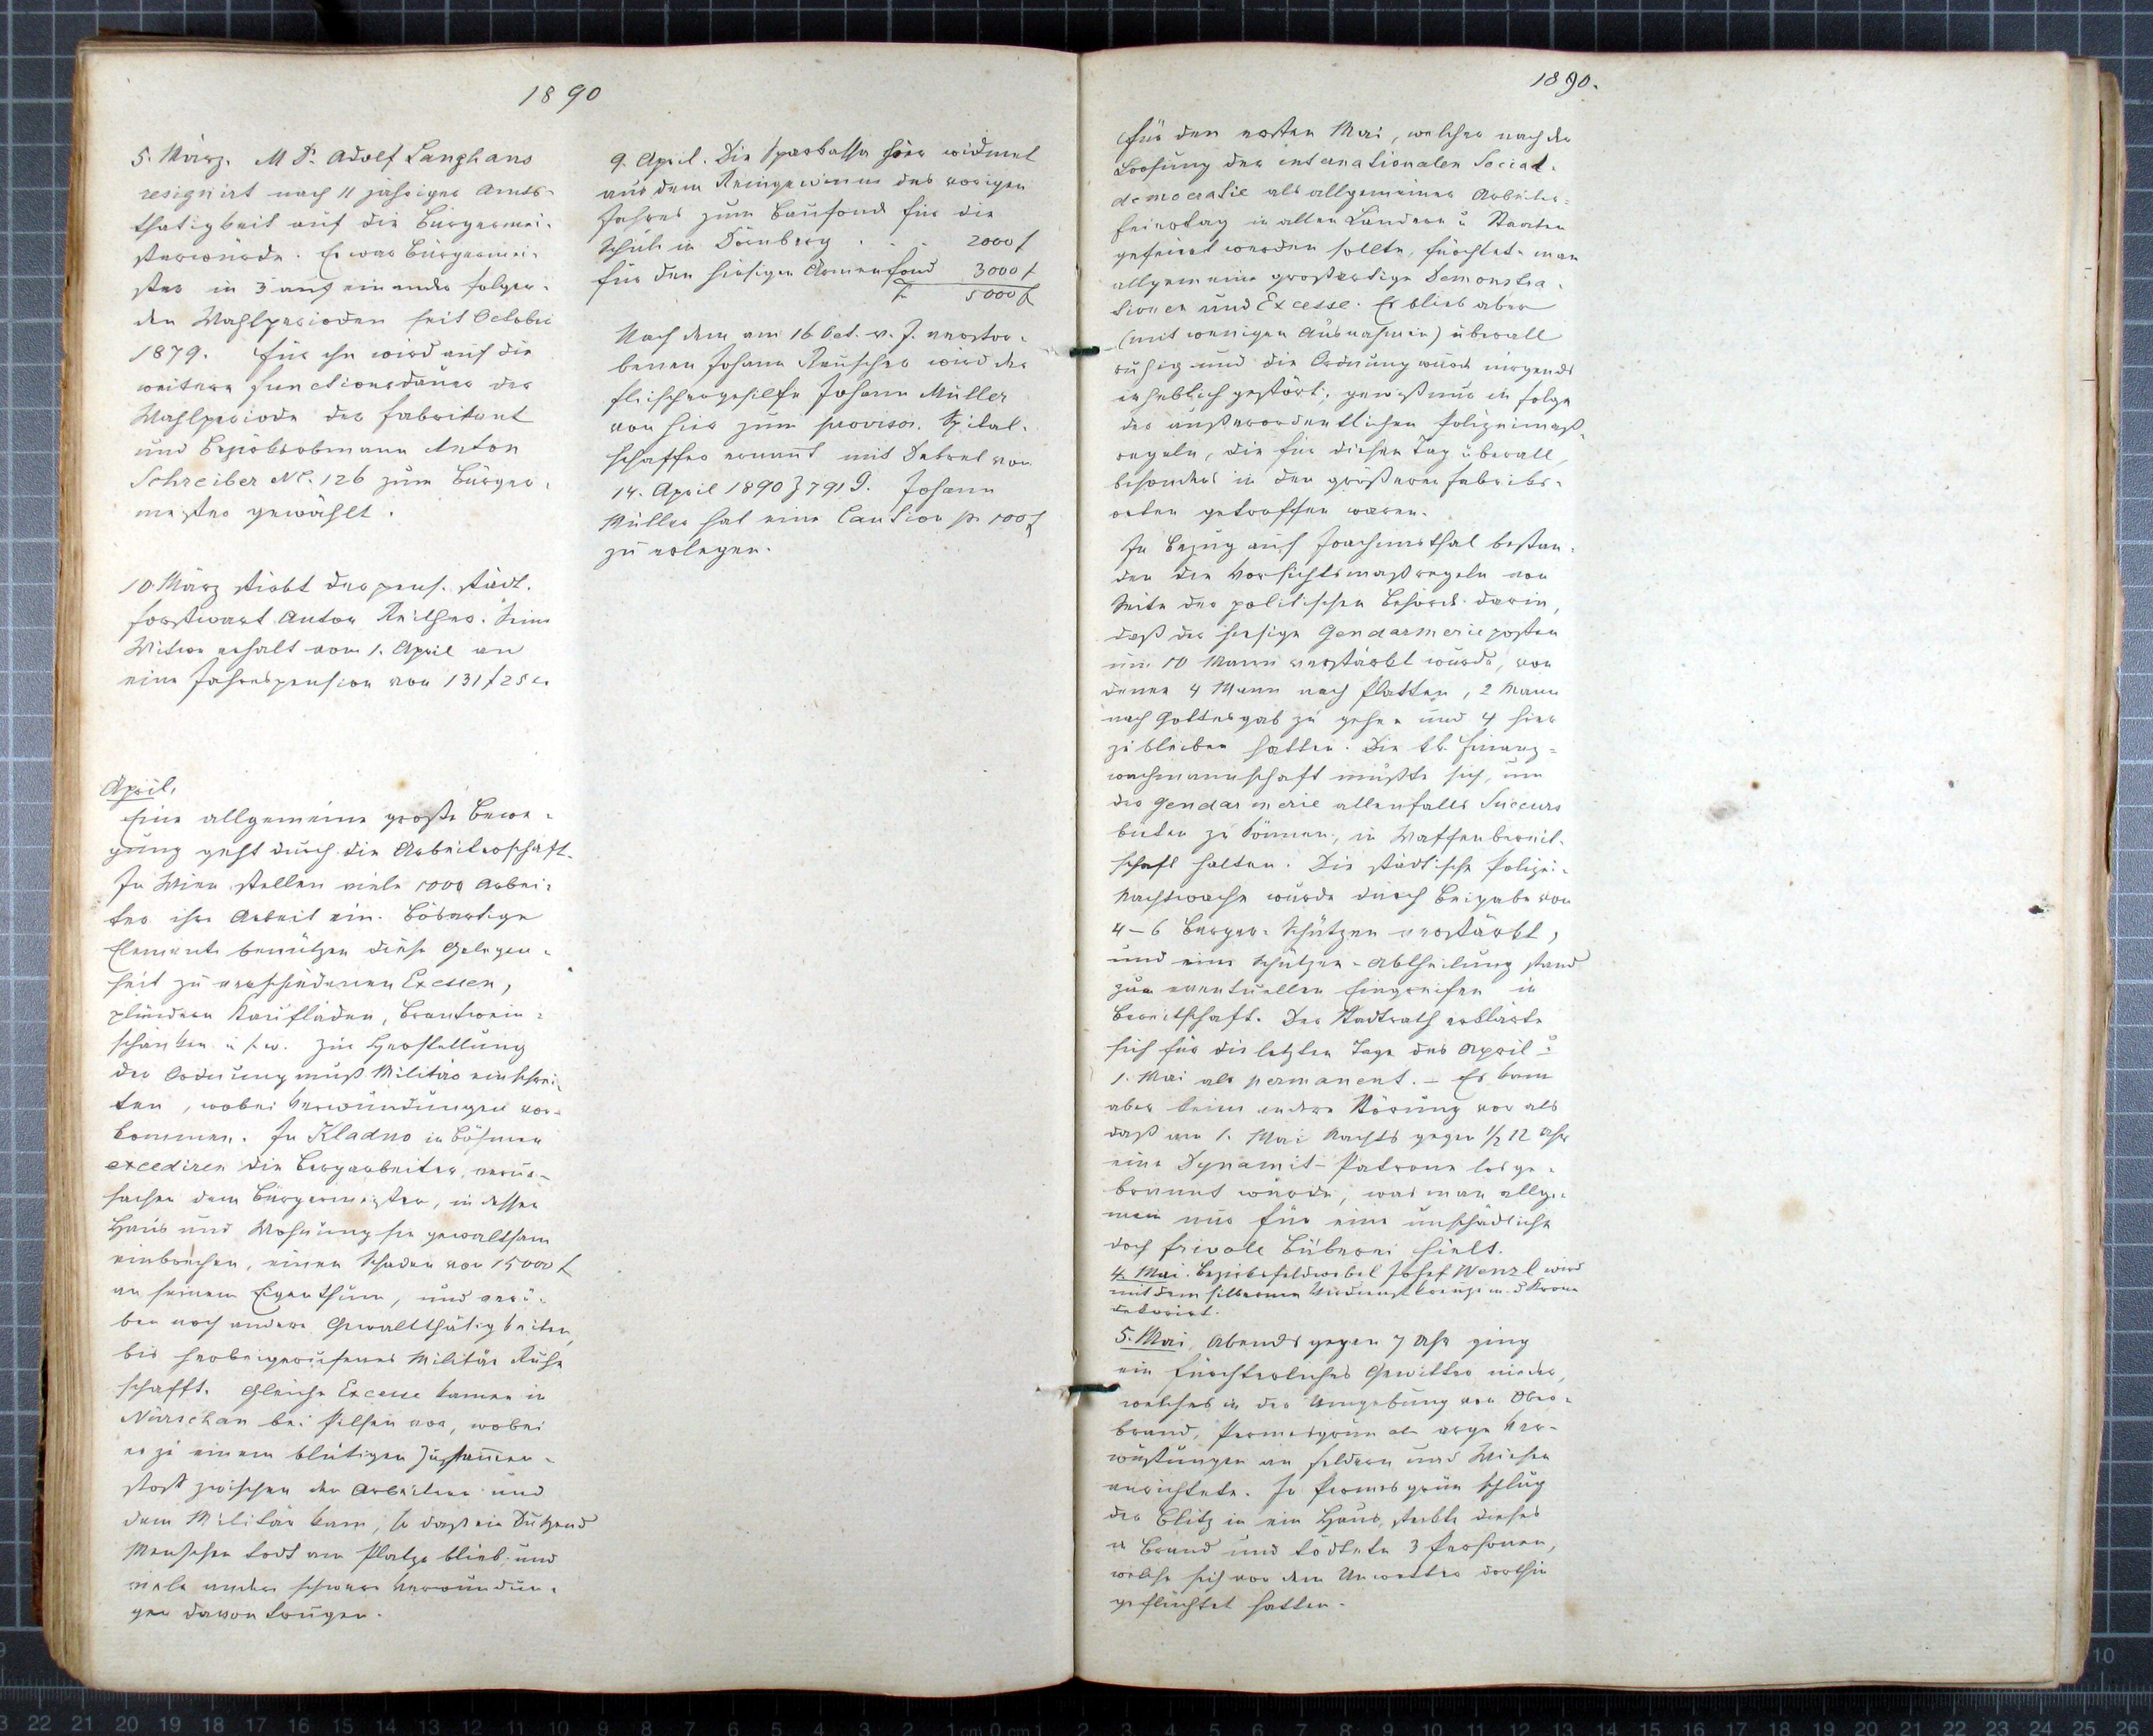 1890
5. März. M Dr. Adolf Langhans
resignirt nach 11 jähriger Amts-
thätigkeit auf die Bürgermei-
sterwürde. Er war Bürgermei-
ster in 3 auf einander folgen-
den Wahlperioden seit October
1879. Für ihn wird auf die
weitere Functionsdauer der
Wahlperiode der Fabrikant
und Bezirksobmann Anton
Schreiber NC. 126 zum Bürger-
meister gewählt.
10 März stirbt der pens. städt.
Forstwart Anton Reither. Seine
Witwe erhält vom 1. April an
eine Jahrespension von 131 f 25 kr
April.
Eine allgemeine große Bewe-
gung geht durch die Arbeiterschaft.
In Wien stellen viele 1000 Arbei-
ter ihre Arbeit ein. Bösartige
Elemente benützen diese Gelegen-
heit zu verschiedenen Excessen,
plündern Kaufläden, Brantwein-
schänken u. s. w. Zur Herstellung
der Ordnung muß Militär einschrei-
ten, wobei Verwundungen vor-
kommen. In Kladno in Böhmen
excediren die Bergarbeiter, verur-
sachen dem Bürgermeister, in dessen
Haus und Wohnung sie gewaltsam
einbrechen, einen Schaden von 15000 f
an seinem Eigenthum, und verü-
ben noch andere Gewaltthätigkeiten,
bis herbeigerufenes Militär Ruhe
schafft. Gleiche Excesse kamen in
Nürschan bei Pilsen vor, wobei
es zu einem blutigen Zusammen-
stoß zwischen den Arbeitern und
dem Militär kam, so daß ein Dutzend
Menschen todt am Platze blieb und
viele andere schwere Verwundun-
gen davon trugen.
9. April. Die Sparkassa hier widmet
aus dem Reingewinne des vorigen
Jahres zum Baufond für die
Schule in Dürnberg . . . 2000 f
für den hiesigen Armenfond 3000 f
5000 f
Nach dem am 16 Oct. v. J. verstor-
benen Johann Rauscher wird der
Fleischergehilfe Johann Müller
von hier zum provisor. Spital-
schaffer ernannt mit Dekret von
14. April 1890 Z 791 G. Johann
Müller hat eine Caution pr 100 f
zu erlegen.
1890.
Für den ersten Mai, welcher nach der
Loosung der internationalen Social-
democratie als allgemeiner Arbeiter-
feiertag in allen Ländern u Staaten
gefeiert werden sollte, fürchtete man
allgemein großartige Demonstra-
tionen und Excesse. Es blieb aber
(mit wenigen Ausnahmen) überall
ruhig und die Ordnung wurde nirgends
erheblich gestört, gewiß nur in Folge
der außerordentlichen Polizeimaß-
regeln, die für diesen Tag überall,
besonders in den größeren Fabriks-
orten getroffen waren.
In Bezug auf Joachimsthal bestan-
den die Vorsichtsmaßregeln von
Seite der politischen Behörde darin,
daß der hiesige Gendarmerieposten
um 10 Mann verstärkt wurde, von
denen 4 Mann nach Platten, 2 Mann
nach Gottesgab zu gehen und 4 hier
zu bleiben hatten. Die kk. Finanz-
wachmannschaft mußte sich, um
der Gendarmerie allenfalls Succurs
bieten zu können, in Waffenbereit-
schaft halten. Die städtische Polizei-
Nachtwache wurde durch Beigabe von
4-6 Bürger-Schützen verstärkt,
und eine Schützen-Abtheilung stand
zum eventuellen Eingreifen in
Bereitschaft. Der Stadtrath erklärte
sich für die letzten Tage des April u
1. Mai als permanent. - Es kam
aber keine andere Störung vor als
daß am 1. Mai Nachts gegen 1/2 12 Uhr
eine Dynamit-Patrone losge-
brannt wurde, was man allge-
mein nur für eine unschädliche
doch frivole Büberei hielt.
4. Mai. Bezirksfeldwebel Josef Wenzl wird
mit dem silbernen Verdienstkreuze m. d Krone
dekorirt.
5. Mai, Abends gegen 7 Uhr ging
ein fürchterliches Gewitter nieder,
welches in der Umgebung von Ober-
brand, Permesgrün etc arge Ver-
wüstungen an Feldern und Wiesen
anrichtete. In Permesgrün schlug
der Blitz in ein Haus, steckte dieses
in Brand und tödtete 3 Personen,
welche sich vor dem Unwetter dorthin
geflüchtet hatten.